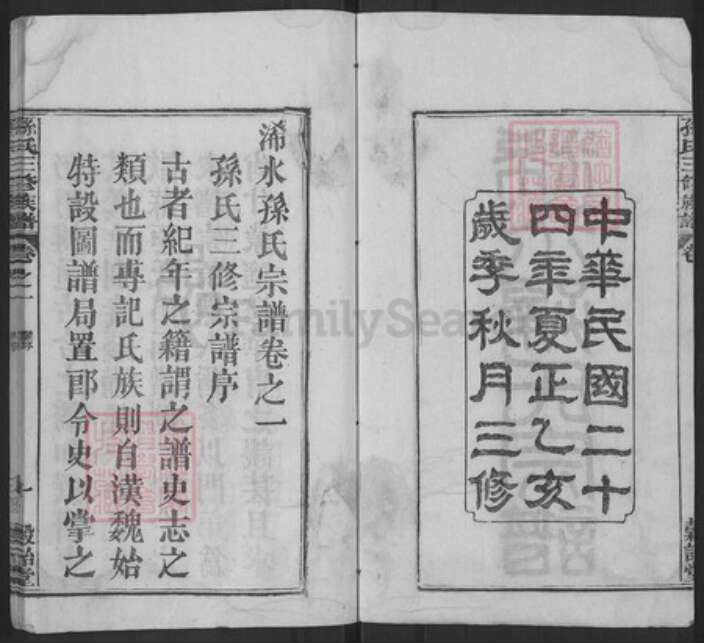 中華民國二十
四年夏正乙亥
歲季秋月三修
浠水孫氏宗譜卷之一
孫氏三修宗譜序
古者紀年之籍謂之譜史志之
類也而專記氏族則自漢魏始
特設圖譜局置郎令史以掌之
孫氏三修族譜
卷之一
孫氏三修族譜
FamilySea